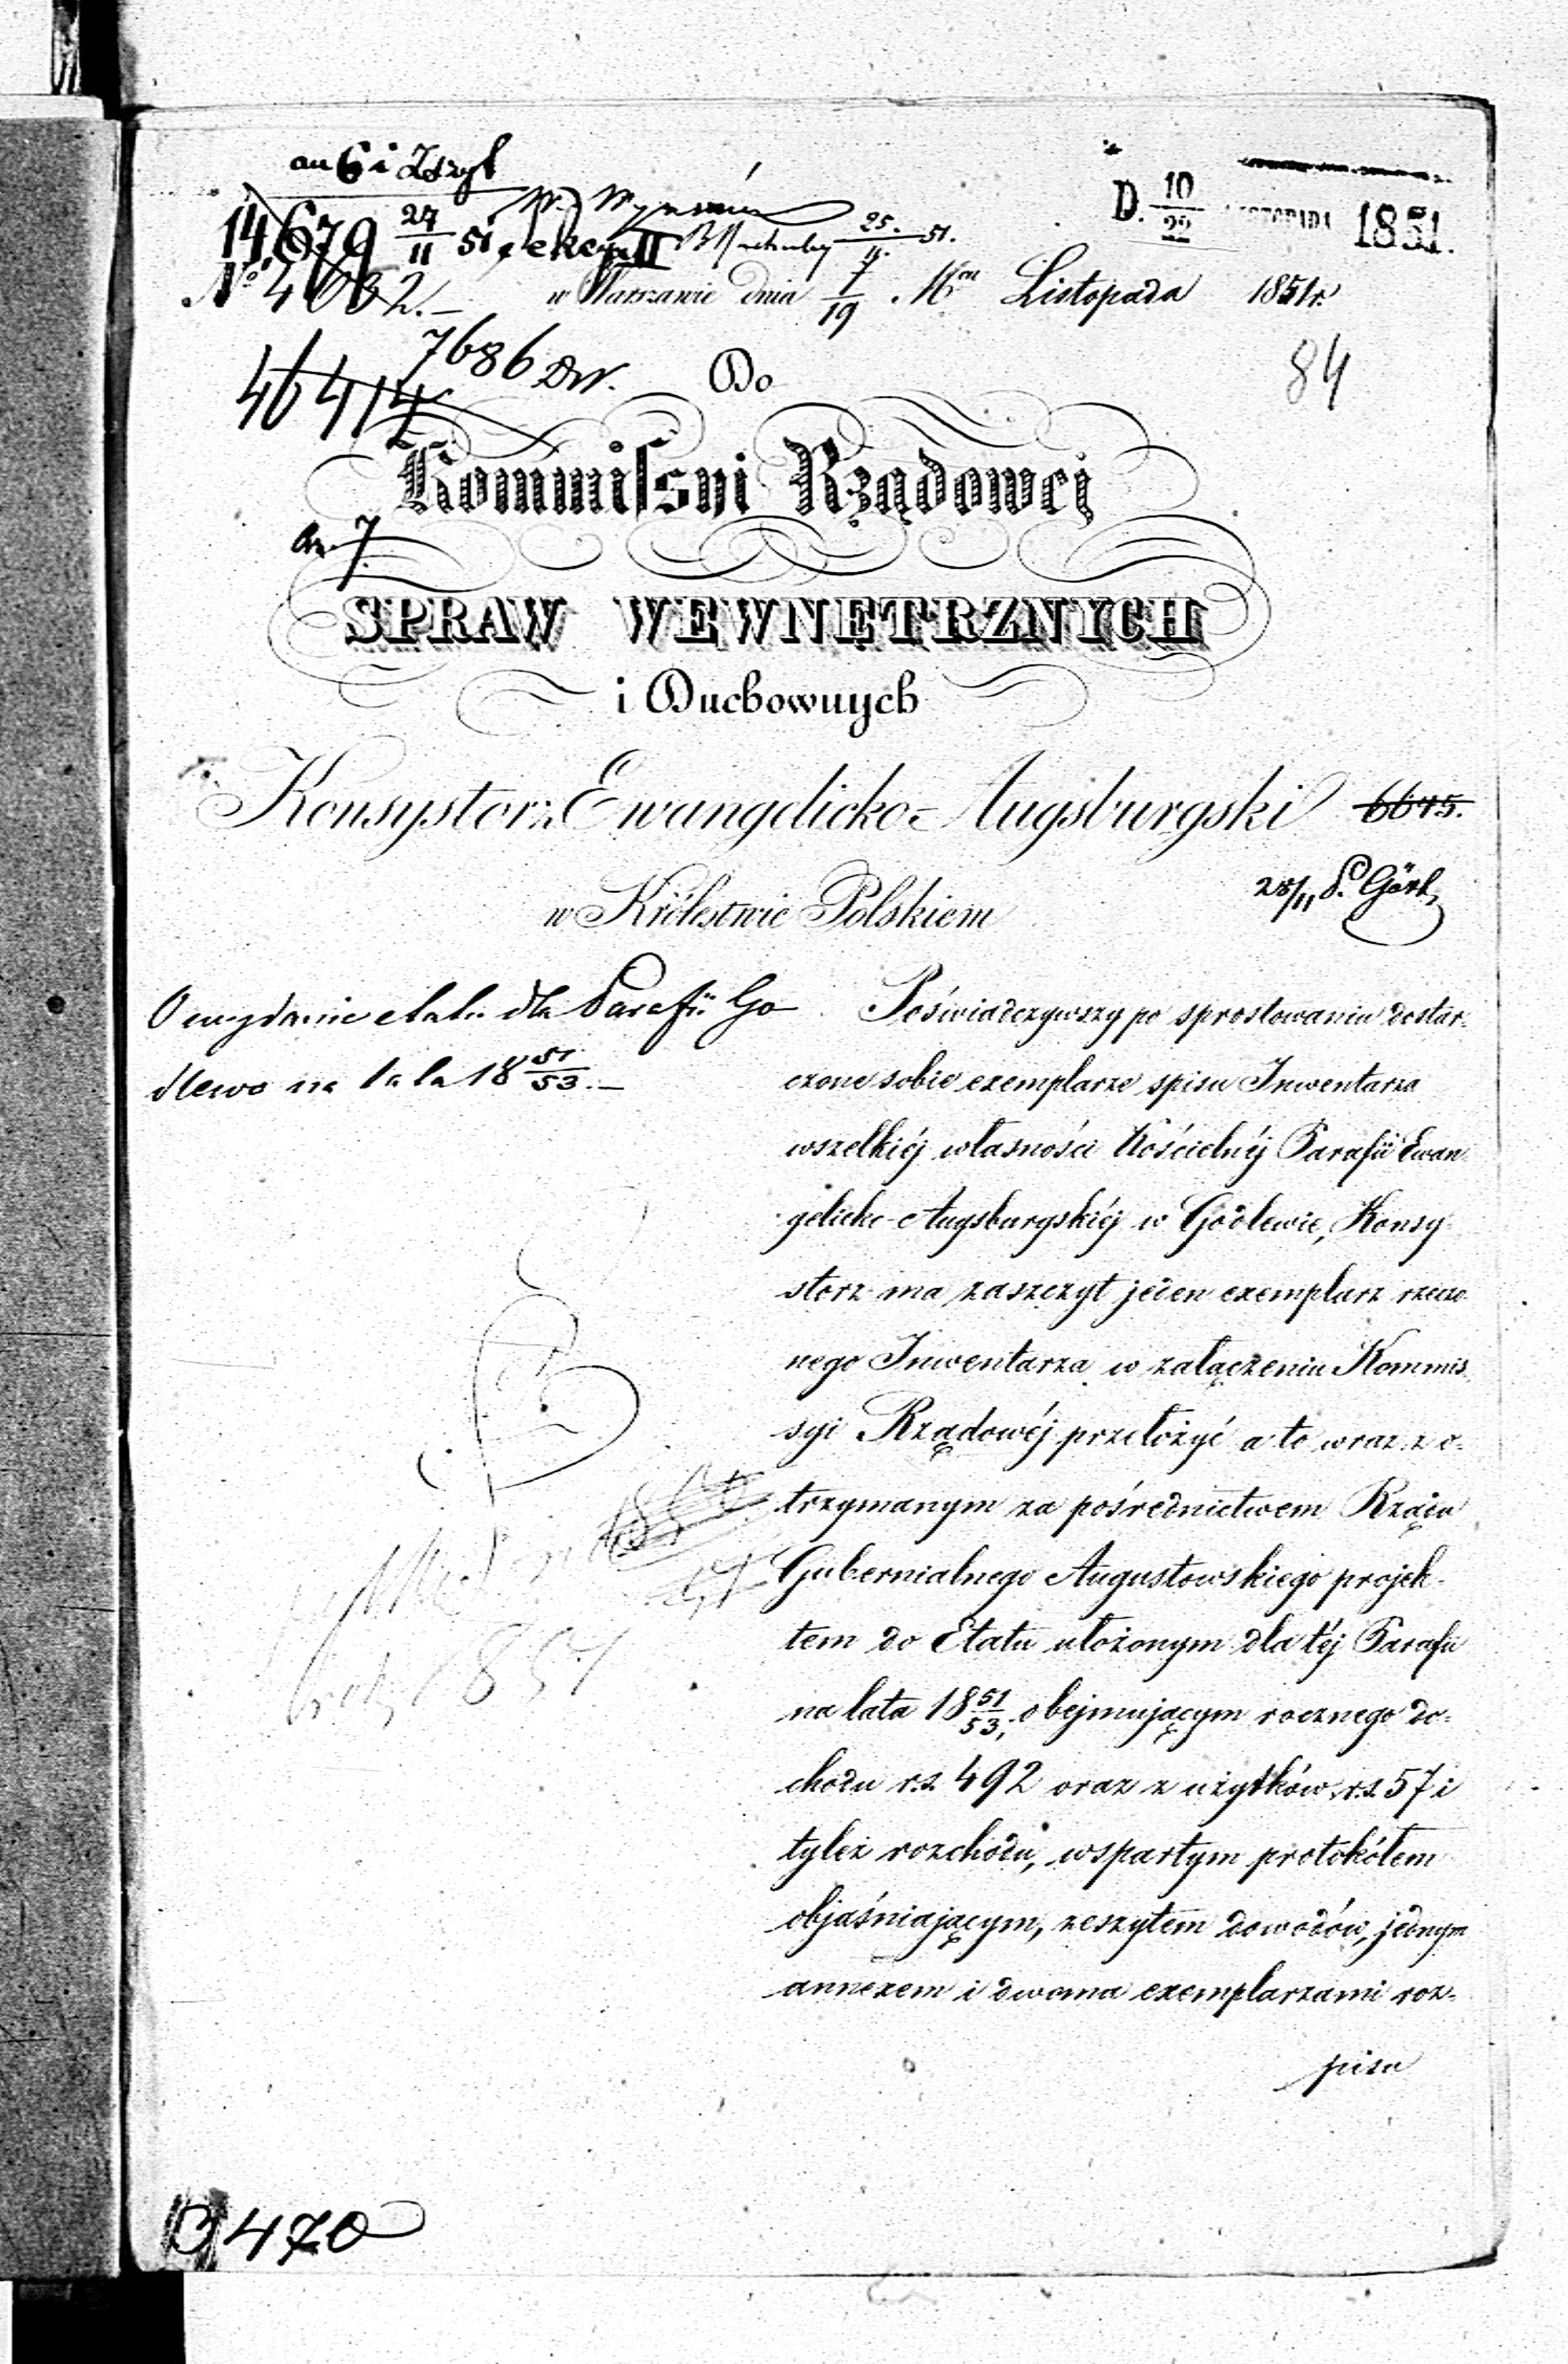 an 6 i Zszyt
D. 10/22 LISTOPADA 1851.
14,679 27/11 51 Sekcya II 25./11. 51.
№ 4662.—
w Warszawie dnia 7/19 M<sup>ca</sup> Listopada 1851 r.
7686 DW.
84
46414
Do
Kommissyi Rządowej
an. 7
SPRAW WEWNĘTRZNYCH
i Duchownych
Konsystorz Ewangelicko-Augsburgski
6645.
w Królestwie Polskiem
28/11 P. Görl,
O wydanie etatu dla Parafii Go
dlewo na lata 18 51/53.—
Poświadczywszy po sprostowaniu dostar-
czone sobie exemplarze spisu Inwentarza
wszelkiéj własności Kościelnéj Parafii Ewan
gelicko-Augsburgskiéj w Godlewie, Konsy
storz ma zaszczyt jeden exemplarz rzeczo
nego Inwentarza w załączeniu Kommis
syi Rządowéj przełożyć a to wraz z o-
trzymanym za pośrednictwem Rządu
Gubernialnego Augustowskiego projek-
tem do Etatu ułożonym dla téj Parafii
na lata 18 51/53, obejmującym rocznego do-
chodu r.s. 492 oraz z użytków r.s. 57 i
tyleż rozchodu, wspartym protokółem
objaśniającym, zeszytem dowodów, jednym
annexem i dwoma exemplarzami roz-
pisu
1851
3470